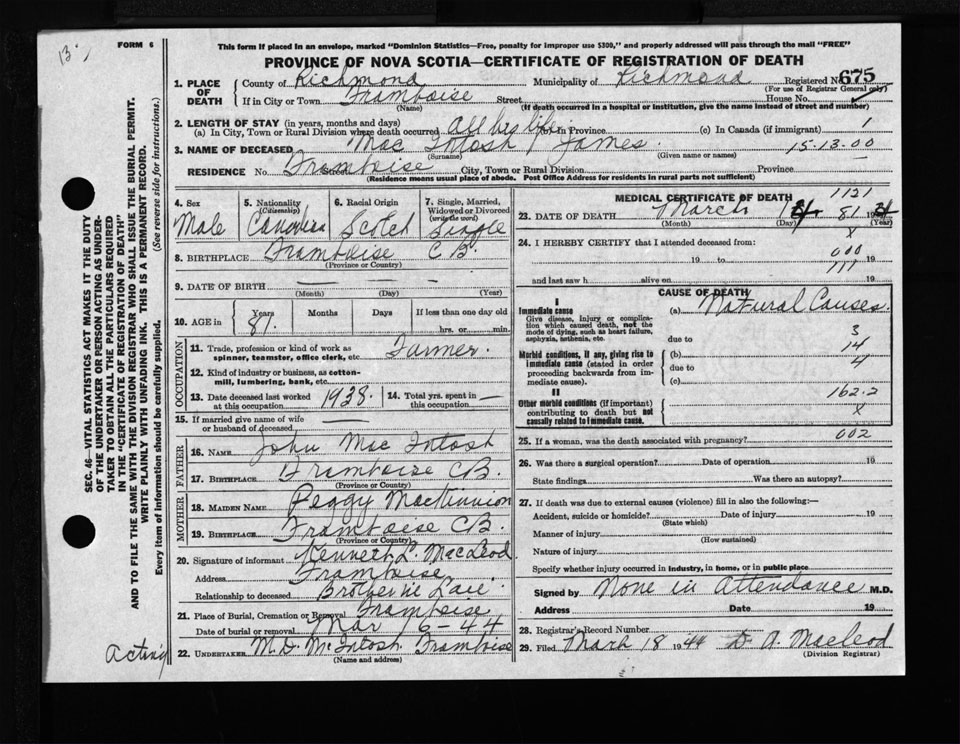 13
FORM 6
This form if placed in an envelope, marked "Dominion Statistics—Free, penalty for improper use $300," and properly addressed will pass through the mail "FREE"
PROVINCE OF NOVA SCOTIA—CERTIFICATE OF REGISTRATION OF DEATH
SEC. 46—VITAL STATISTICS ACT MAKES IT THE DUTY
OF THE UNDERTAKER OR PERSON ACTING AS UNDER-
TAKER TO OBTAIN ALL THE PARTICULARS REQUIRED
IN THE "CERTIFICATE OF REGISTRATION OF DEATH"
AND TO FILE THE SAME WITH THE DIVISION REGISTRAR WHO SHALL ISSUE THE BURIAL PERMIT.
WRITE PLAINLY WITH UNFADING INK. THIS IS A PERMANENT RECORD.
Every item of information should be carefully supplied. (See reverse side for instructions.)
1. PLACE OF DEATH County of Richmond Municipality of Richmond Registered No. 675
(For use of Registrar General only)
If in City or Town Framboise Street House No.
(Name) (If death occurred in a hospital or institution, give the name instead of street and number)
2. LENGTH OF STAY (in years, months and days)
(a) In City, Town or Rural Division where death occurred All his life (b) In Province (c) In Canada (if immigrant) 1
3. NAME OF DECEASED Mac Intosh James 15-13-00
(Surname) (Given name or names)
RESIDENCE No. Framboise City, Town or Rural Division Province
(Residence means usual place of abode. Post Office Address for residents in rural parts not sufficient)
4. Sex Male
5. Nationality (Citizenship) Canadian
6. Racial Origin Scotch
7. Single, Married, Widowed or Divorced (write the word) Single
8. BIRTHPLACE Framboise C B
(Province or Country)
9. DATE OF BIRTH — —
(Month) (Day) (Year)
10. AGE in Years 81 Months Days If less than one day old
hrs. or min.
OCCUPATION
11. Trade, profession or kind of work as
spinner, teamster, office clerk, etc. Farmer.
12. Kind of industry or business, as cotton-
mill, lumbering, bank, etc.
13. Date deceased last worked
at this occupation 1938. 14. Total yrs. spent in
this occupation —
15. If married give name of wife
or husband of deceased —
FATHER
16. NAME John Mac Intosh
17. BIRTHPLACE Framboise CB.
(Province or Country)
MOTHER
18. MAIDEN NAME Peggy MacKinnion
19. BIRTHPLACE Framboise CB.
(Province or Country)
20. Signature of informant Kenneth L. MacLeod
Address Framboise
Relationship to deceased Brother in Law
21. Place of Burial, Cremation or Removal Framboise
Date of burial or removal Mar 6-44
acting
22. UNDERTAKER M.D. McIntosh Framboise
(Name and address)
MEDICAL CERTIFICATE OF DEATH 1121
23. DATE OF DEATH March 81 19
(Month) (Day) (Year)
X
24. I HEREBY CERTIFY that I attended deceased from:
000
19 to 19
777
and last saw h alive on 19
CAUSE OF DEATH
I
Immediate cause (a) Natural Causes.
Give disease, injury or complica-
tion which caused death, not the
mode of dying, such as heart failure,
asphyxia, asthenia, etc. due to 3
14
Morbid conditions, if any, giving rise to
immediate cause (stated in order
proceeding backwards from im-
mediate cause). (b)
due to 4
(c)
II 162.2
Other morbid conditions (if important)
contributing to death but not
causally related to immediate cause. X
25. If a woman, was the death associated with pregnancy? 002
26. Was there a surgical operation? Date of operation 19
State findings Was there an autopsy?
27. If death was due to external causes (violence) fill in also the following:—
Accident, suicide or homicide? Date of injury 19
(State which)
Manner of injury
(How sustained)
Nature of injury
Specify whether injury occurred in industry, in home, or in public place
Signed by None in Attendance M.D.
Address Date 19
28. Registrar's Record Number
29. Filed March 18 1944 D. A. Macleod
(Division Registrar)